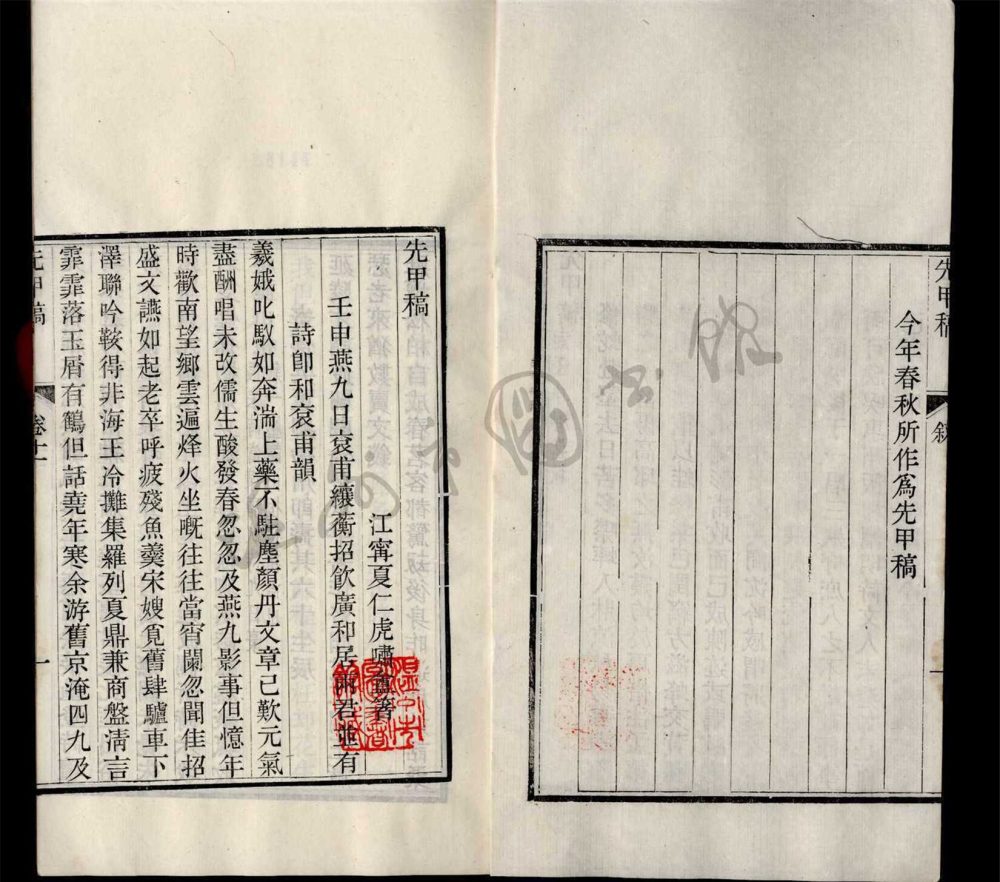 今年春秋所作爲先甲稿
先甲稿
敘
一
先甲稿
江甯夏仁虎嘯盦著
壬申燕九日裒甫纕蘅招飲廣和居兩君並有
詩卽和裒甫韻
羲娥叱馭如奔湍上藥不駐塵顏丹文章己歎元氣
盡酬唱未改儒生酸發春忽忽及燕九影事但憶年
時歡南望鄉雲遍烽火坐嘅往往當宵闌忽聞佳招
盛文讌如起老卒呼疲殘魚羹宋嫂覓舊肆驢車下
澤聯吟鞍得非海王冷攤集羅列夏鼎兼商盤淸言
霏霏落玉屑有鶴但話堯年寒余游舊京淹四九及
先甲稿
卷十一
一